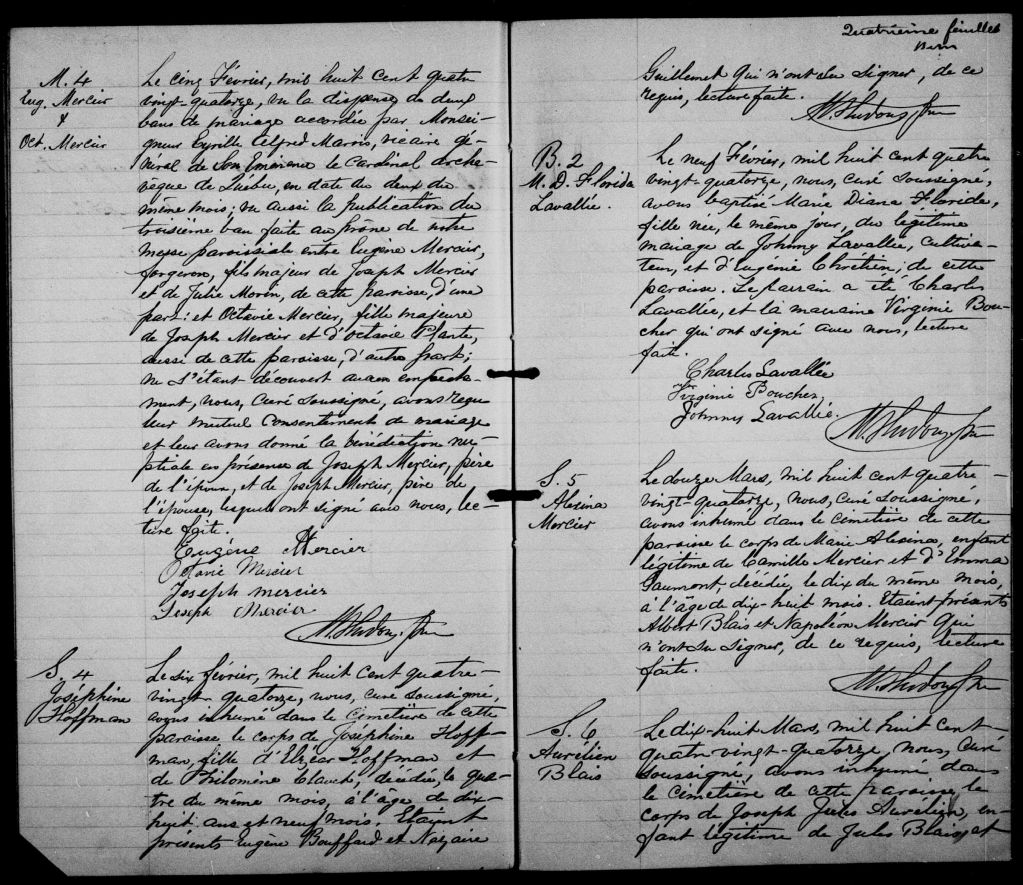 M. 4
Eug. Mercier
&
Oct. Mercier
Le cinq Février, mil huit cent quatre
vingt-quatorze, vu la dispense de deux
bans de mariage accordée par Monsei-
gneur Cyrille Alfred Marois, vicaire gé-
néral de Son Eminence le Cardinal Arche-
vêque de Québec, en date du deux du
même mois; vu aussi la publication du
troisième ban faite au prône de notre
messe paroissiale entre Eugène Mercier,
forgeron, fils majeur de Joseph Mercier
et de Julie Morin, de cette paroisse, d'une
part: et Octavie Mercier, fille majeure
de Joseph Mercier et d'Octavie Plante,
aussi de cette paroisse, d'autre part;
ne s'étant découvert aucun empêche-
ment, nous, Curé soussigné, avons reçu
leur mutuel consentement de mariage
et leur avons donné la bénédiction nu-
ptiale en présence de Joseph Mercier, père
de l'époux, et de Joseph Mercier, père de
l'épouse, lesquels ont signé avec nous, lec-
ture faite.
Eugène Mercier
Octavie Mercier
Joseph mercier
Joseph Mercier
S. 4
Joséphine
Hoffman
Le six février, mil huit cent quatre-
vingt-quatorze, nous, curé soussigné,
avons inhumé dans le cimetière de cette
paroisse le corps de Joséphine Hoff-
man, fille d'Elzéar Hoffman et
de Philomène Blanche, décédée, le qua-
tre du même mois, à l'âge de dix-
huit ans et neuf mois. Etaient
présents Eugène Bouffard et Nazaire
Quatrième feuillet
Guillemet qui n'ont su signer, de ce
requis, lecture faite.
B. 2
M. D. Florida
Lavallée.
Le neuf Février, mil huit cent quatre
vingt-quatorze, nous, curé soussigné,
avons baptisé Marie Diana Floride,
fille née, le même jour, du légitime
mariage de Johnny Lavallée, cultiva-
teur, et d'Eugénie Chrétien; de cette
paroisse. Le parrain a été Charles
Lavallée, et la marraine Virginie Bou-
cher qui ont signé avec nous, lecture
faite.
Charles Lavallée
Virginie Boucher,
Johnny Lavallée.
S. 5
Alexina
Mercier
Le douze Mars, mil huit cent quatre-
vingt-quatorze, nous, curé soussigné,
avons inhumé dans le cimetière de cette
paroisse le corps de Marie Alexina, enfant
légitime de Camille Mercier et d'Emma
Gaumont, décédée, le dix du même mois,
à l'âge de dix-huit mois. Etaient présents
Albert Blais et Napoléon Mercier qui
n'ont su signer, de ce requis, lecture
faite.
S. 6
Aurélien
Blais
Le dix-huit Mars, mil huit cent
quatre-vingt-quatorze, nous, curé
soussigné, avons inhumé dans
le cimetière de cette paroisse, le
corps de Joseph Jules Aurélien, en-
fant légitime de Jules Blais, et